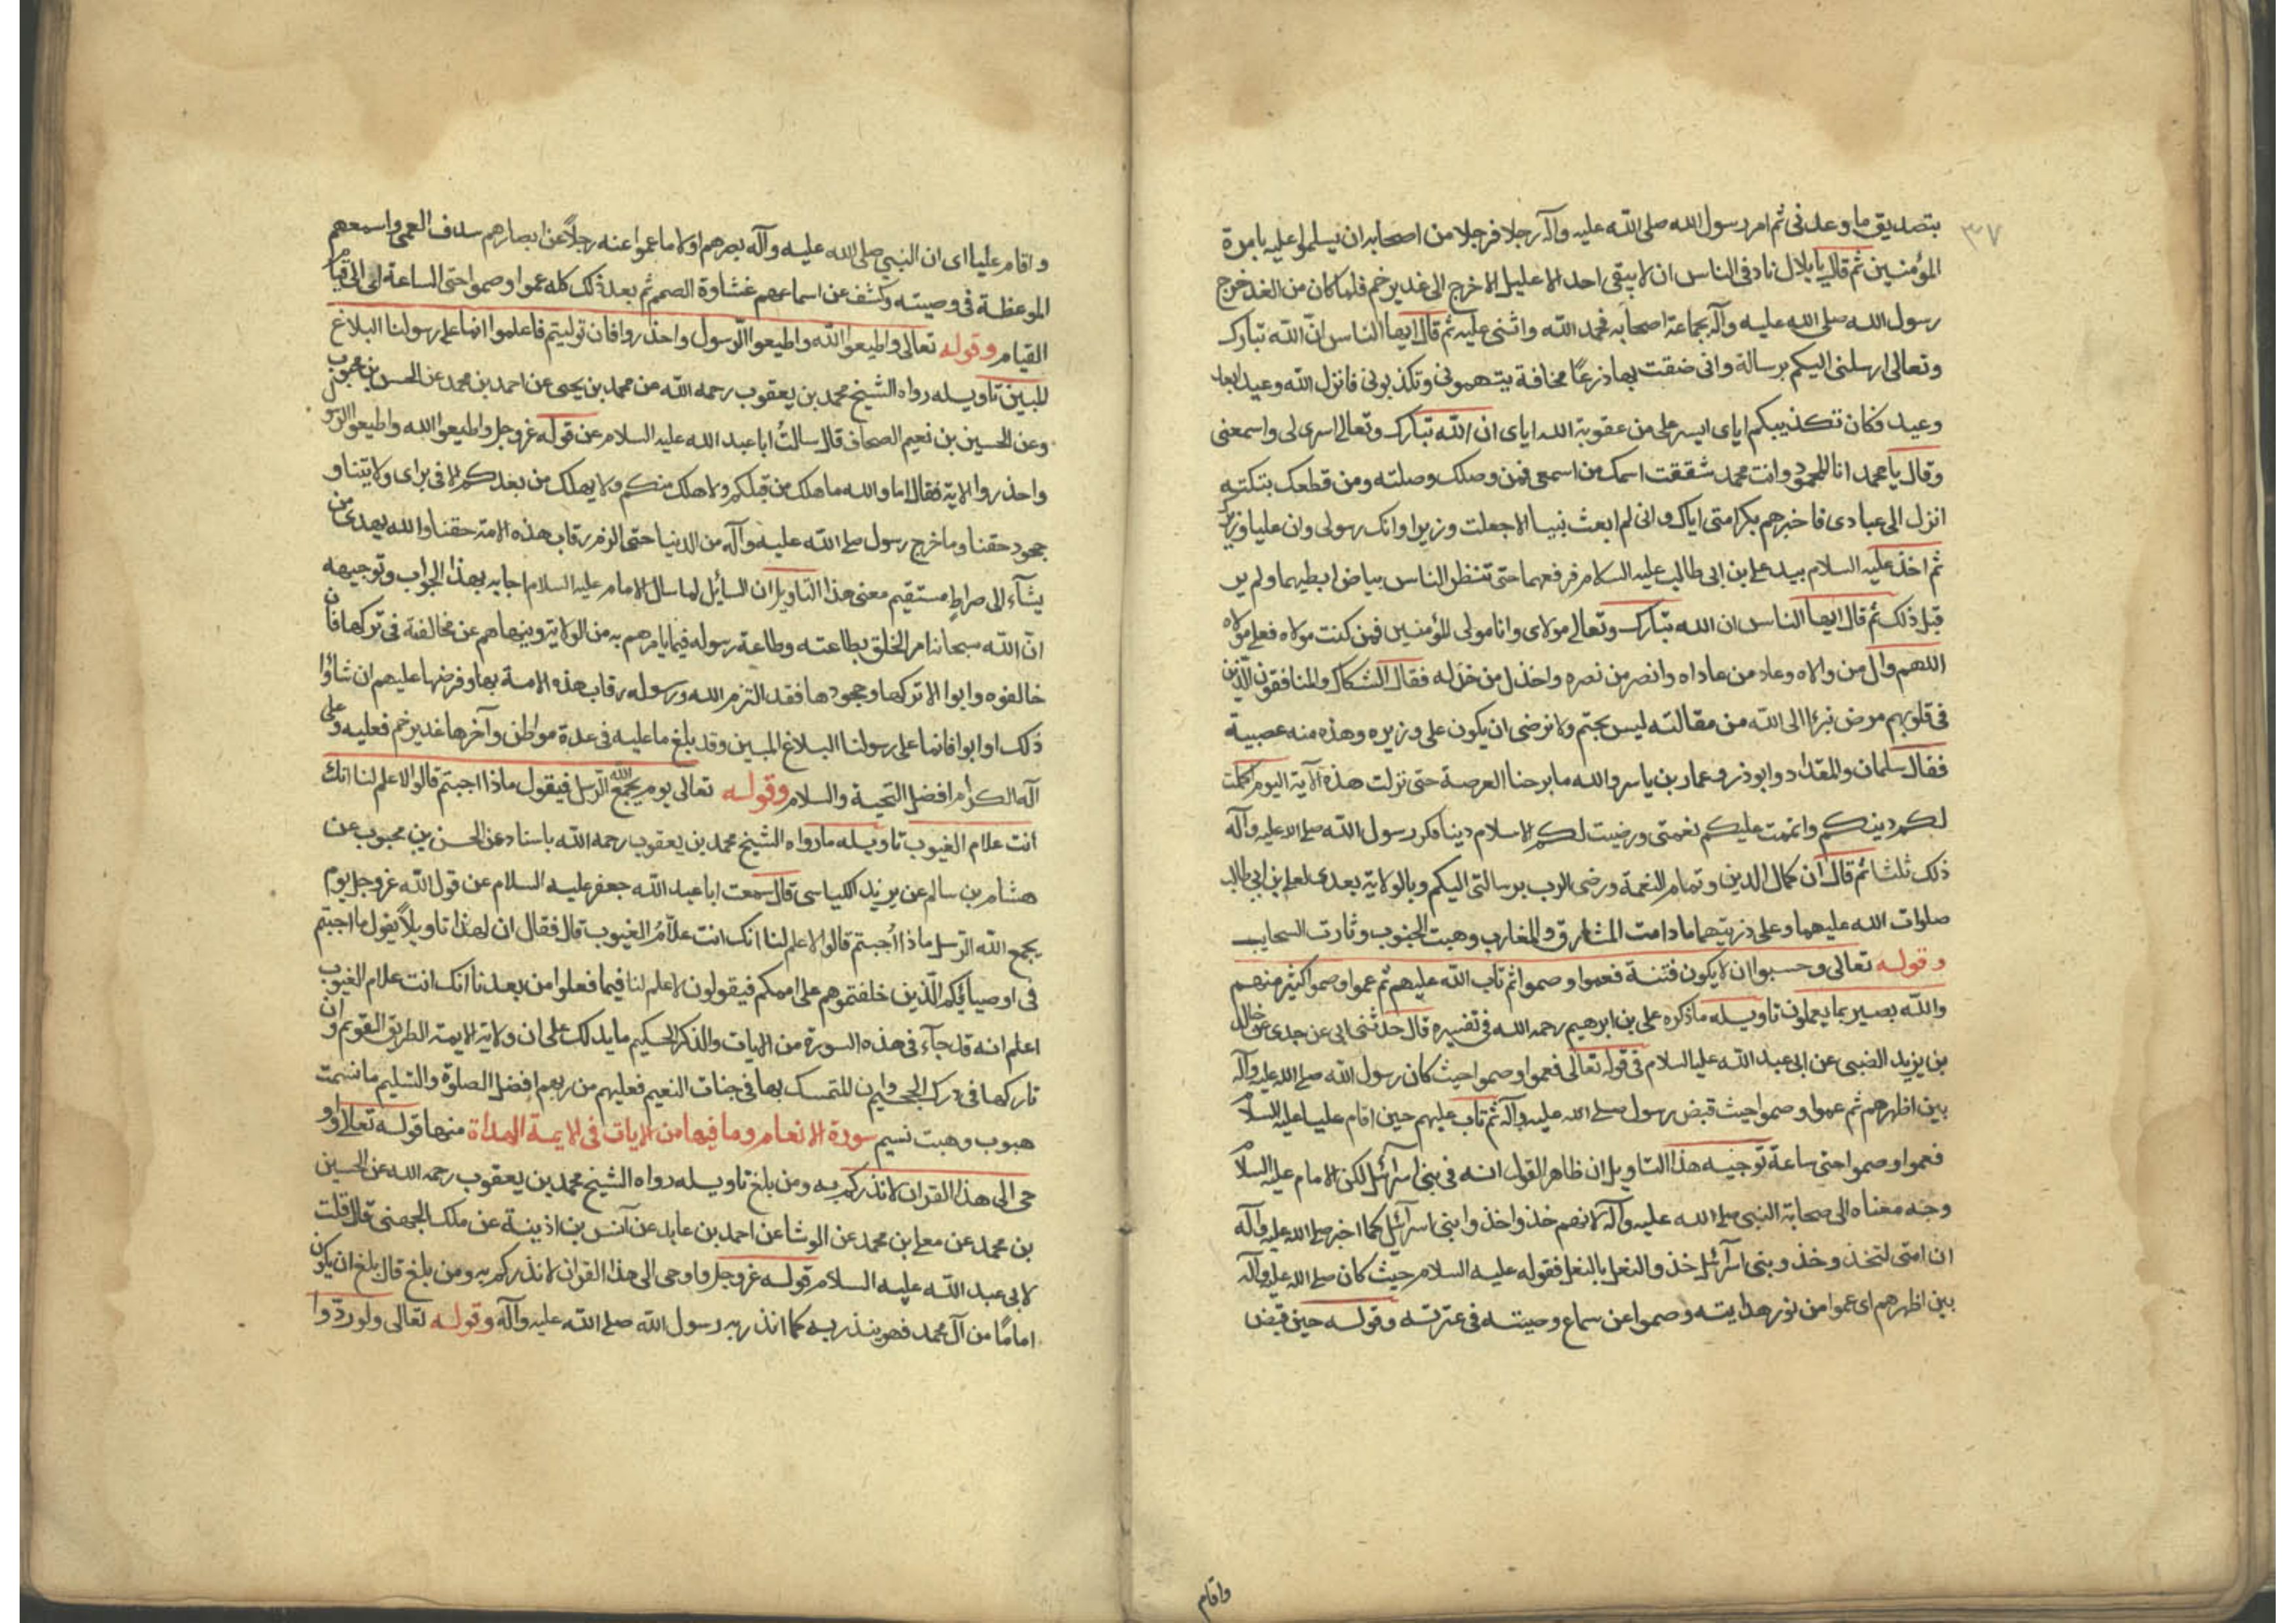 ٣٧
بتصديق ما وعدنى ثم امر رسول الله صلى الله عليه وآله رجلا فرجلا من اصحابه ان يسلموا عليه بامرة
المؤمنين ثم قال يا بلال ناد فى الناس ان لا يبقى احد الا عليل الا خرج الى غدير خم فلما كان من الغد خرج
رسول الله صلى الله عليه وآله بجماعة اصحابه فحمد الله واثنى عليه ثم قال ايها الناس ان الله تبارك
وتعالى ارسلنى اليكم برسالة وانى ضقت بها ذرعًا مخافة يتهمونى وتكذبونى فانزل الله وعيد ابعاد
وعيد فكان تكذيبكم اياى ايسر على من عقوبة الله اياى ان الله تبارك وتعالى اسرى لى واسمعنى
وقال يا محمد انا المحمود وانت محمد شققت اسمك من اسمى فمن وصلك وصلته ومن قطعك بتكته
انزل الى عبادى فاخبرهم بكرامتى اياك وانى لم ابعث نبيا الا جعلت وزيرا وانك رسولى وان عليا وزيرك
ثم اخذ عليه السلام بيد على بن ابى طالب عليه السلام فرفعهما حتى تنظر الناس بياض ابطيهما ولم ير
قبل ذلك ثم قال ايها الناس ان الله تبارك وتعالى مولاى وانا مولى المؤمنين فمن كنت مولاه فعلى مولاه
اللهم وال من والاه وعاد من عاداه وانصر من نصره واخذل من خذله فقال الشكاك والمنافقون الذين
فى قلوبهم مرض نبرءا الى الله من مقالته ليس بحتم ولا نرضى ان يكون على وزيره وهذه منه عصبية
فقال سلمان والمقداد وابوذر وعمار بن ياسر والله ما برحنا العرصة حتى نزلت هذه الآية اليوم اكملت
لكم دينكم واتممت عليكم نعمتى ورضيت لكم الاسلام دينا فكرر رسول الله صلى الله عليه وآله
ذلك ثلثا ثم قال ان كمال الدين وتمام النعمة ورضى الرب برسالتى اليكم وبالولاية بعدى لعلى بن ابى طالب
صلوات الله عليهما وعلى ذريتهما ما دامت المشارق والمغارب وهبت الجنوب وثارت السحايب
وقوله تعالى وحسبوا ان لا يكون فتنة فعموا وصموا ثم تاب الله عليهم ثم عموا وصموا كثير منهم
والله بصير بما يعملون تاويله ما ذكره على بن ابرهيم رحمه الله فى تفسيره قال حدثنى ابى عن جدى عن خالد
بن يزيد الضبى عن ابى عبد الله عليه السلام فى قوله تعالى فعموا وصموا حيث كان رسول الله صلى الله عليه وآله
بين اظهرهم ثم عموا وصموا حيث قبض رسول صلى الله عليه وآله ثم تاب عليهم حين اقام عليا عليه السلام
فعموا وصموا حتى ساعة توجيه هذا التاويل ان ظاهر القول انه فى بنى اسرآئيل لكن الامام عليه السلام
وجه معناه الى صحابة النبى صلى الله عليه وآله لانهم خذوا خذوا بنى اسرآئيل كما اخبر صلى الله عليه وآله
ان امتى لتخذ وخذو بنى اسرآئيل خذو النعل بالنعل فقوله عليه السلام حيث كان صلى الله عليه وآله
بين اظهرهم اى عموا من نور هدايته وصموا عن سماع وصيته فى عترته وقوله حين قبض
واقام
واقام عليا اى ان النبى صلى الله عليه وآله بصرهم اولا ما عموا عنه رجلاً عن ابصارهم سدف العمى واسمعهم
الموعظة فى وصيته وكشف عن اسماعهم غشاوة الصمم ثم بعد ذلك كله عموا وصموا حتى الساعة لى الى قيام
القيام وقوله تعالى واطيعوا الله واطيعوا الرسول واحذروا فان توليتم فاعلموا انما على رسولنا البلاغ
المبين تاويله رواه الشيخ محمد بن يعقوب رحمه الله من محمد بن يحيى عن احمد بن محمد عن الحسن بن محبوب
وعن الحسين بن نعيم الصحاف قال سالت ابا عبد الله عليه السلام عن قوله عز وجل واطيعوا الله واطيعوا الرسول
واحذروا الاية فقال اما والله ما هلك من قبلكم ولا هلك منكم ولا يهلك من بعدكم الا فى براى ولايتنا و
جحود حقنا وما خرج رسول صلى الله عليه وآله من الدنيا حتى الزم رقاب هذه الامة حقنا والله يهدى من
يشآء الى صراط مستقيم معنى هذا التاويل ان السائل لما سال الامام عليه السلام اجابه بهذا الجواب وتوجيهه
انّ الله سبحانه امر الخلق بطاعته وطاعة رسوله فيما يامرهم به من الولاية وينهاهم عن مخالفته فى تركها فان
خالفوه وابوا الا تركها وجحودها فقد الزم الله ورسوله رقاب هذه الامة بها وفرضها عليهم ان شاؤا
ذلك او ابوا فانما على رسولنا البلاغ المبين وقد بلغ ما عليه فى عدة مواطن وآخرها غدير خم فعليه وعلى
آله الكرام افضل التحية والسلام وقوله تعالى يوم يجمع الله الرسل فيقول ماذا اجبتم قالوا لا علم لنا انك
انت علام الغيوب تاويله ما رواه الشيخ محمد بن يعقوب رحمه الله باسناد عن الحسن بن محبوب عن
هشام بن سالم عن يزيد الكياسى قال سمعت ابا عبد الله جعفر عليه السلام عن قول الله عز وجل يوم
يجمع الله الرسل ماذا اُجبتم قالوا لا علم لنا انك انت علاّمُ الغيوب قال فقال ان لهذا تاويلاً يقول ما اجبتم
فى اوصيائكم الذين خلفتموهم على اممكم فيقولون لا علم لنا فيما فعلوا من بعدنا انك انت علام الغيوب
اعلم انه قد جآء فى هذه السورة من الايات والذكر الحكيم ما يدلك على ان ولاية الايمة الطريق القويم وان
تاركها فى درك الجحيم وان المتمسك بها فى جنات النعيم فعليهم من ربهم افضل الصلوة والتسليم ما نسمت
هبوب وهبت نسيم سورة الانعام وما فيها من الايات فى الايمة الهداة منها قوله تعالى واو
حى الى هذا القران لانذركم به ومن بلغ تاويله رواه الشيخ محمد بن يعقوب رحمه الله عن الحسين
بن محمد عن معلى بن محمد عن الوشا عن احمد بن عايد عن آنس بن اذينة عن ملك الجهنى قال قلت
لابى عبد الله عليه السلام قوله عز وجل واوحى الى هذا القران لانذركم به ومن بلغ قال بلغ ان يكون
امامًا من آل محمد فهو ينذر به كما انذر به رسول الله صلى الله عليه وآله وقوله تعالى ولو ردّوا